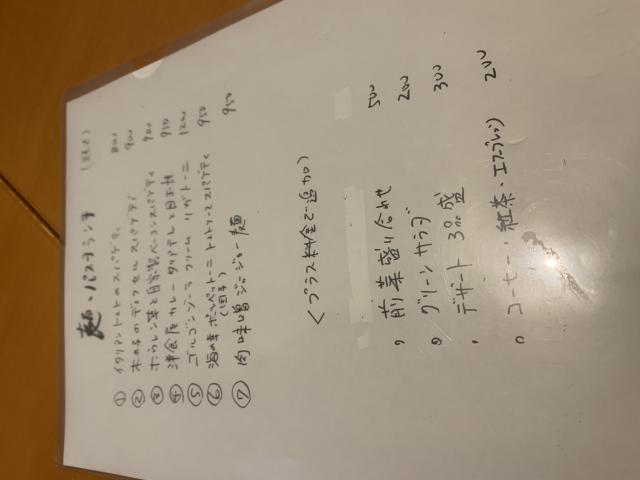 麺・パスタランチ (税込)
① イタリアントマトのスパゲティ 800
② 木の子のデュクセル スパゲティ 900
③ ホウレン草と自家製ベーコンスパゲティ 900
④ 洋食屋カレー タリアテレと自家製 950
⑤ ゴルゴンゾーラ クリーム リガトーニ 1200
⑥ 海の幸 トマトソーススパゲティ 950
⑦ 肉味噌ジャージャー麺 950
<プラス料金で追加>
・前菜盛り合わせ 500
・グリーンサラダ 200
・デザート3点盛 300
・コーヒー・紅茶・エスプレッソ 200